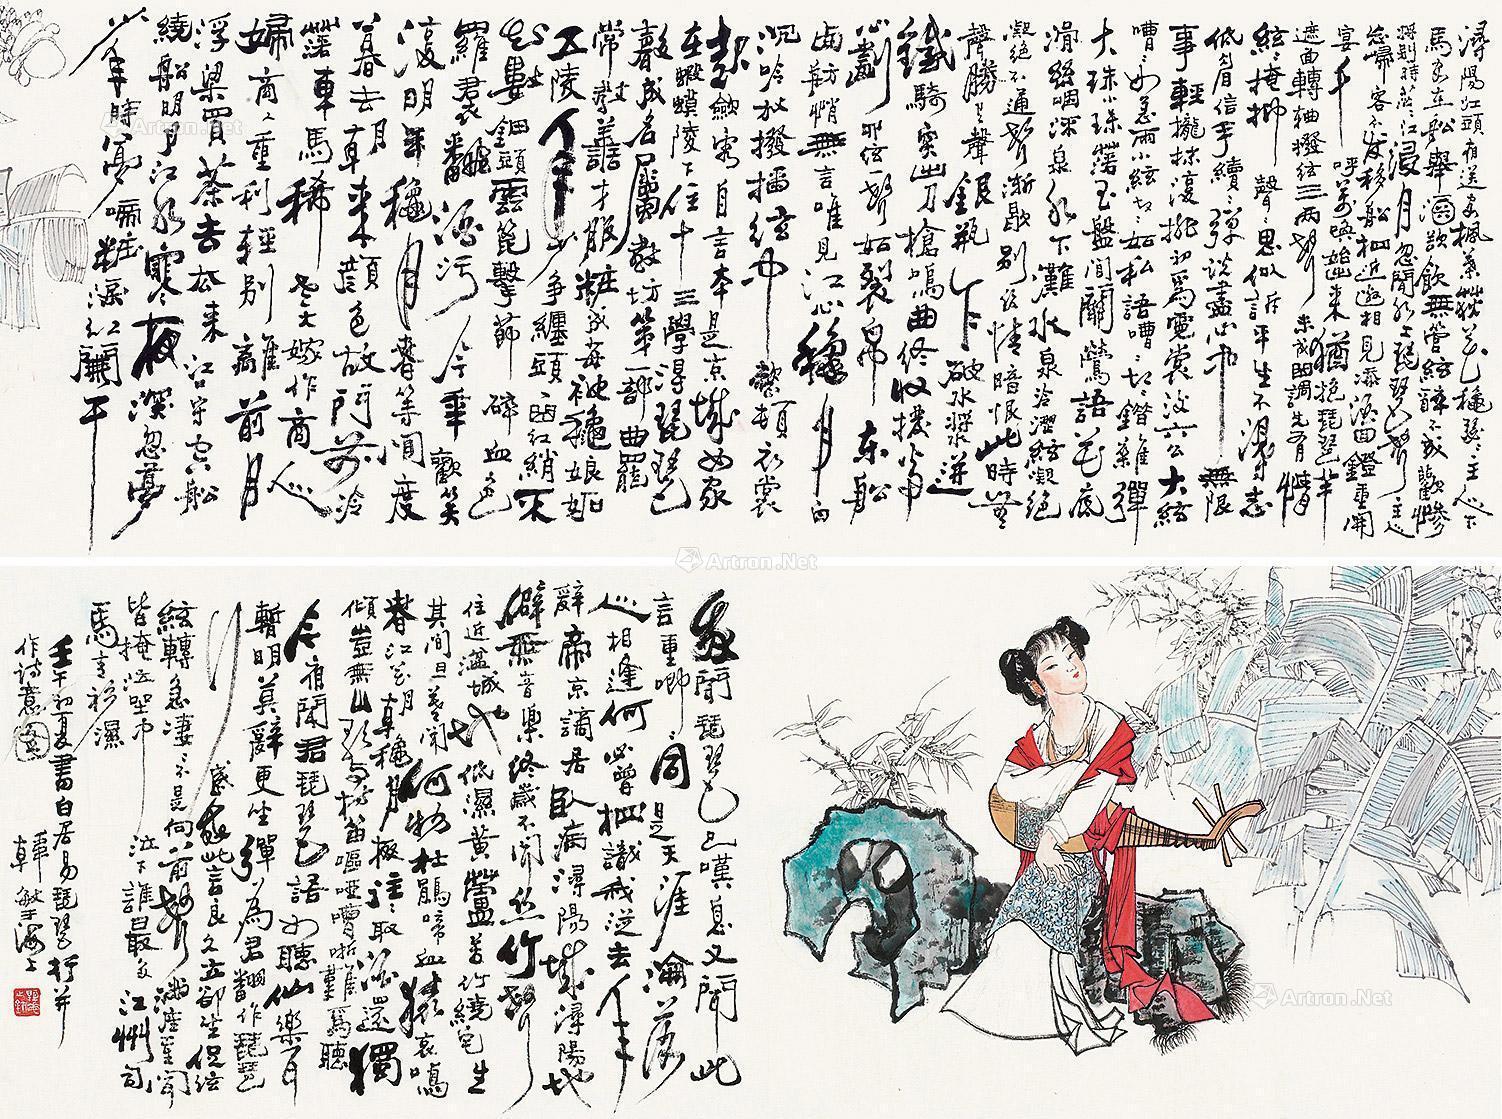 潯陽江頭夜送客楓葉荻花秋瑟瑟主人下
馬客在船舉酒欲飲無管絃醉不成歡慘
將別時茫茫江浸月忽聞水上琵琶聲主人
忘歸客不發移船相近邀相見添酒回鐙重開
宴千呼萬喚始出來猶抱琵琶半
遮面轉軸撥絃三兩聲未成曲調先有情
絃絃掩抑聲聲思似訴平生不得志
低眉信手續續彈說盡心中無限
事輕攏抹復挑初為霓裳後六么大絃
嘈嘈如急雨小絃切切如私語嘈嘈切切錯雜彈
大珠小珠落玉盤間關鶯語花底
滑絲咽流泉水下灘水泉冷澀絃凝絕
凝絕不通聲漸歇別有情暗恨此時無
聲勝有聲銀瓶乍破水漿迸
鐵騎突出刀槍鳴曲終收撥當
心劃四絃一聲如裂帛東船
西舫悄無言唯見江心秋月白
沉吟放撥插絃中整頓衣裳
起斂容自言本是京城女家
在蝦蟆陵下住十三學得琵琶
成名屬教坊第一部曲罷
常教善才服粧成每被秋娘妒
五陵年少爭纏頭一曲紅綃不
知數鈿頭雲篦擊節碎血色
羅裙翻酒污今年歡笑
復明年秋月春等閒度
暮去朝來顏色故門前冷
落車馬稀老大嫁作商人
婦商人重利輕別離前月
浮梁買茶去去來江口守空船
繞船明月江水寒夜深忽夢
少年時夢啼粧淚紅闌干
我聞琵琶已嘆息又聞此
言重唧唧同是天涯淪落
人相逢何必曾相識我從去年
辭帝京謫居臥病潯陽城潯陽地
僻無音樂終歲不聞絲竹聲
住近湓城地低濕黃蘆苦竹繞宅生
其間旦暮聞何物杜鵑啼血猿哀鳴
春江花朝秋月夜往往取酒還獨
傾豈無山歌與村笛嘔啞嘲哳難為聽
今夜聞君琵琶語如聽仙樂耳
暫明莫辭更坐彈一曲為君翻作琵琶
行感我此言良久立卻坐促絃
絃轉急淒淒不是向前聲滿座重聞
皆掩泣座中泣下誰最多江州司
馬青衫濕
壬午初夏書白居易琵琶行并
作詩意圖 韓敏于海上
Artron.Net